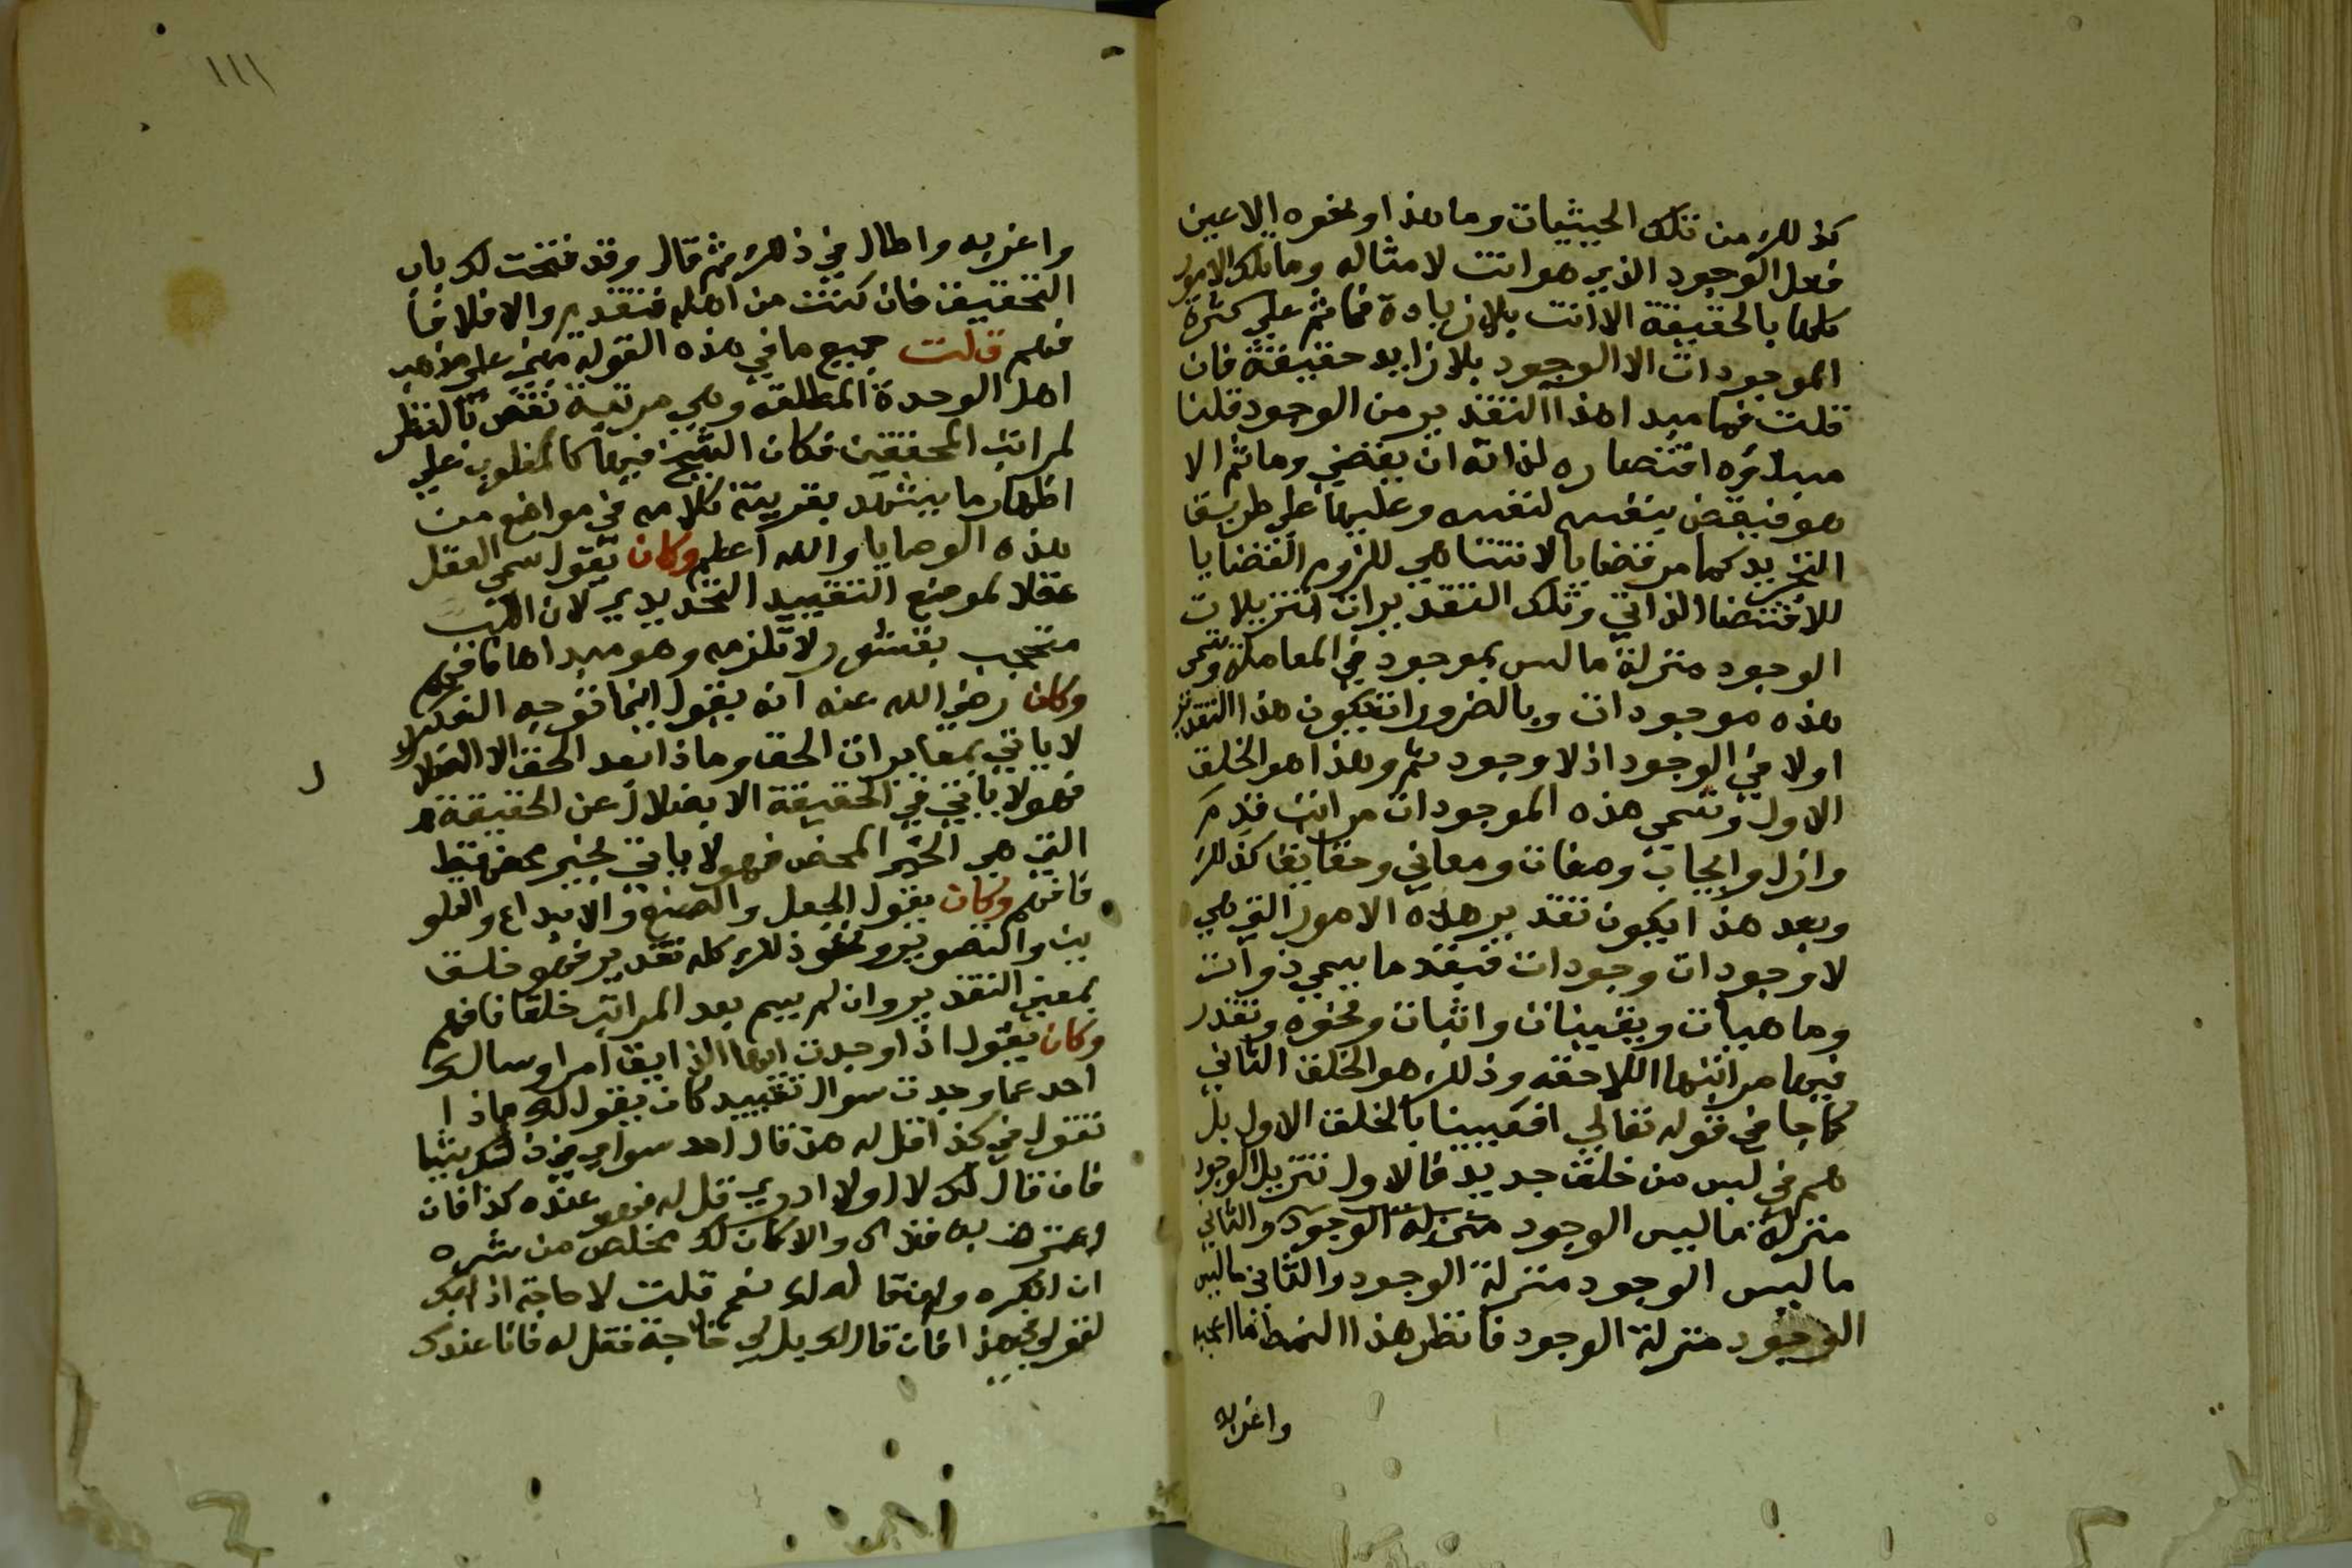 كذلك من تلك الحيثيات وما هذا ونحوه الا عين
فعل الوجود الذي هو انت لا مثاله وما تلك الامور
كلها بالحقيقة الا انت بلا زيادة فما ثم على كثرة
الموجودات الا الوجود بلا زايد حقيقة فان
قلت فما مبدا هذا التقدير من الوجود قلنا
مبداؤه اقتضاره لذاته ان يقضي وما ثم الا
هو فيقضي بنفسه لنفسه وعليها على طريق
التجريد كما مر فقضايا لا تتناهي للزوم القضايا
للاقتضا الذاتي وتلك التقديرات تنزيلات
الوجود منزلة ما ليس بموجود في المعاملة وتسمى
هذه موجودات وبالضرورة يكون هذا التقدير
اولا في الوجود اذ لا وجود ثم وهذا هو الخلق
الاول وتسمى هذه الموجودات مراتب قدم
وازل وايجاب وصفات ومعاني وحقايق كذلك
وبعد هذا يكون تقدير هذه الامور التي هي
لا وجودات وجودات فيقدر ما يسمى ذوات
وماهيات ويقينيات واثبات ونحوه وتقدر
فيها مراتبها اللاحقه وذلك هو الخلق الثاني
كما جا في قوله تعالي افعيينا بالخلق الاول بل
هم في لبس من خلق جديد فالاول تنزيل الوجود
منزلة ما ليس الوجود منزلة الوجود والثاني
ما ليس الوجود منزلة الوجود والثاني ما ليس
الوجود منزلة الوجود فانظر هذا النمط ما اعجبه
واغربه
١١١
واغربه واطال في ذلك ثم قال وقد فتحت لك باب
التحقيق فان كنت من اهله فتقدم والا فلا فا
فهم قلت جميع ما في هذه القولة مبني على مذهب
اهل الوحدة المطلقه وهي مرتبة نقص بالنظر
لمراتب المحققين فكان الشيخ فيها كالمغلوب على
اظهار ما يشهد بقرينة كلامه في مواضع من
هذه الوصايا والله اعلم وكان يقول سمي العقل
عقلا لموضع التقييد التحديدي لان اللب
محتجب بقشور لا تلزمه وهو مبداها فافهم
وكان رضي الله عنه انه يقول اينما توجه الفكر
لا ياتي بمغايرات الحق وماذا بعد الحق الا الضلال
فهو لا ياتي في الحقيقة الا بضلال عن الحقيقة
التي هي الخير المحض فهو لا ياتي بخير محض قط
فافهم وكان يقول الجعل والصنع والابداع والتكو
ين والتصوير ونحو ذلك كله تقدير فهو خلق
بمعنى التقدير وان لم يسم بعد المراتب خلقا فافهم
وكان يقول اذا وجدت ايها الذايق امرا وسالك
احد عما وجدت سوال تقييد كان يقول لك ماذا
تقول في كذا فقل له هذا قال احد سواي في ذلك شيا
فان قال لك لا اولا ادري قل له فهو عنده كذا فان
اعترف به فذاك والا كان لك مخلص من شره
ان انكره وان قال لك نعم قلت لا حاجة اذا بك
لقولي هذا فان قال لك بل لي حاجة فقل له فانا عندك